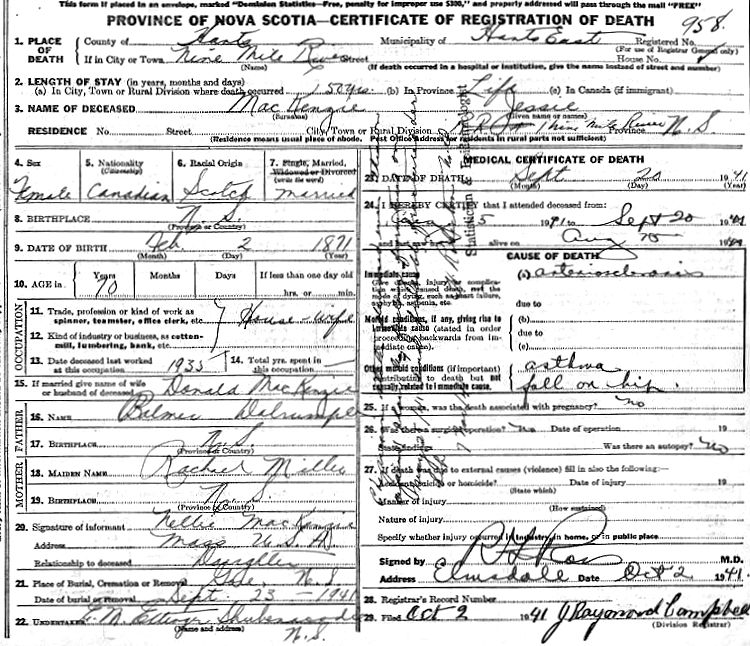 This form if placed in an envelope, marked "Dominion Statistics—Free, penalty for improper use $300," and properly addressed will pass through the mail "FREE"
PROVINCE OF NOVA SCOTIA—CERTIFICATE OF REGISTRATION OF DEATH
958
1. PLACE OF DEATH
County of Hants
Municipality of Hants East
Registered No.
(For use of Registrar General only)
If in City or Town Nine Mile River Street
House No.
(Name)
(If death occurred in a hospital or institution, give the name instead of street and number)
2. LENGTH OF STAY (in years, months and days)
(a) In City, Town or Rural Division where death occurred 50 yrs. (b) In Province Life (c) In Canada (if immigrant)
3. NAME OF DECEASED MacKenzie Jessie
(Surname) (Given name or names)
RESIDENCE No. Street City, Town or Rural Division Nine Mile River Province N.S.
(Residence means usual place of abode. Post Office Address for residents in rural parts not sufficient)
4. Sex
Female
5. Nationality
(Citizenship)
Canadian
6. Racial Origin
Scotch
7. Single, Married, Widowed or Divorced
(write the word)
Married
8. BIRTHPLACE N.S.
(Province or Country)
9. DATE OF BIRTH Feb. 2 1871
(Month) (Day) (Year)
10. AGE in
Years Months Days If less than one day old
70 hrs. or min.
OCCUPATION
11. Trade, profession or kind of work as spinner, teamster, office clerk, etc.
House-wife
12. Kind of industry or business, as cotton-mill, lumbering, bank, etc.
13. Date deceased last worked at this occupation 1935
14. Total yrs. spent in this occupation
15. If married give name of wife or husband of deceased Donald MacKenzie
FATHER
16. NAME Dalrumple
17. BIRTHPLACE N.S.
(Province or Country)
MOTHER
18. MAIDEN NAME Rachael Miller
19. BIRTHPLACE N.S.
(Province or Country)
20. Signature of informant Nellie MacKenzie
Address Mass U.S.A.
Relationship to deceased Daughter
21. Place of Burial, Cremation or Removal Gore, N.S.
Date of burial or removal Sept. 23 - 1941
22. UNDERTAKER E.M. Ettinger Shubenacadie
(Name and address) N.S.
MEDICAL CERTIFICATE OF DEATH
23. DATE OF DEATH Sept 20 1941
(Month) (Day) (Year)
24. I HEREBY CERTIFY that I attended deceased from:
5 1941 to Sept 20 1941
and last saw alive on Aug 1941
CAUSE OF DEATH
Immediate cause
Give disease, injury or complication which caused death, not the mode of dying, such as heart failure, asphyxia, asthenia, etc.
(a) arteriosclerosis
due to
Morbid conditions, if any, giving rise to immediate cause (stated in order proceeding backwards from immediate cause).
(b)
due to
(c)
Other morbid conditions (if important) contributing to death but not causally related to immediate cause.
asthma
fall on hip.
25. If a woman, was the death associated with pregnancy? no
26. Was there a surgical operation? No Date of operation 19
State findings Was there an autopsy? No
27. If death was due to external causes (violence) fill in also the following:—
Accident, suicide or homicide? Date of injury 19
(State which)
Manner of injury
(How sustained)
Nature of injury
Specify whether injury occurred in industry, in home, or in public place
Signed by M.D.
Address Elmsdale Date Oct 2 1941.
28. Registrar's Record Number
29. Filed Oct 2 1941 J Raymond Campbell
(Division Registrar)